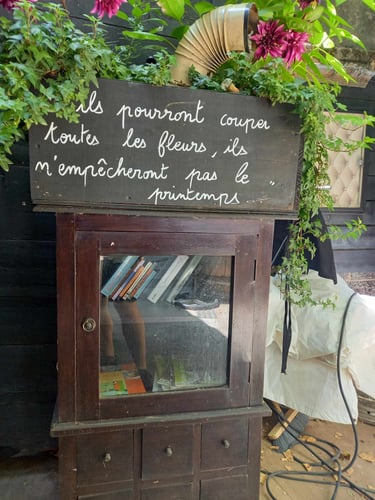 ils pourront couper
toutes les fleurs, ils
n'empêcheront pas le
printemps